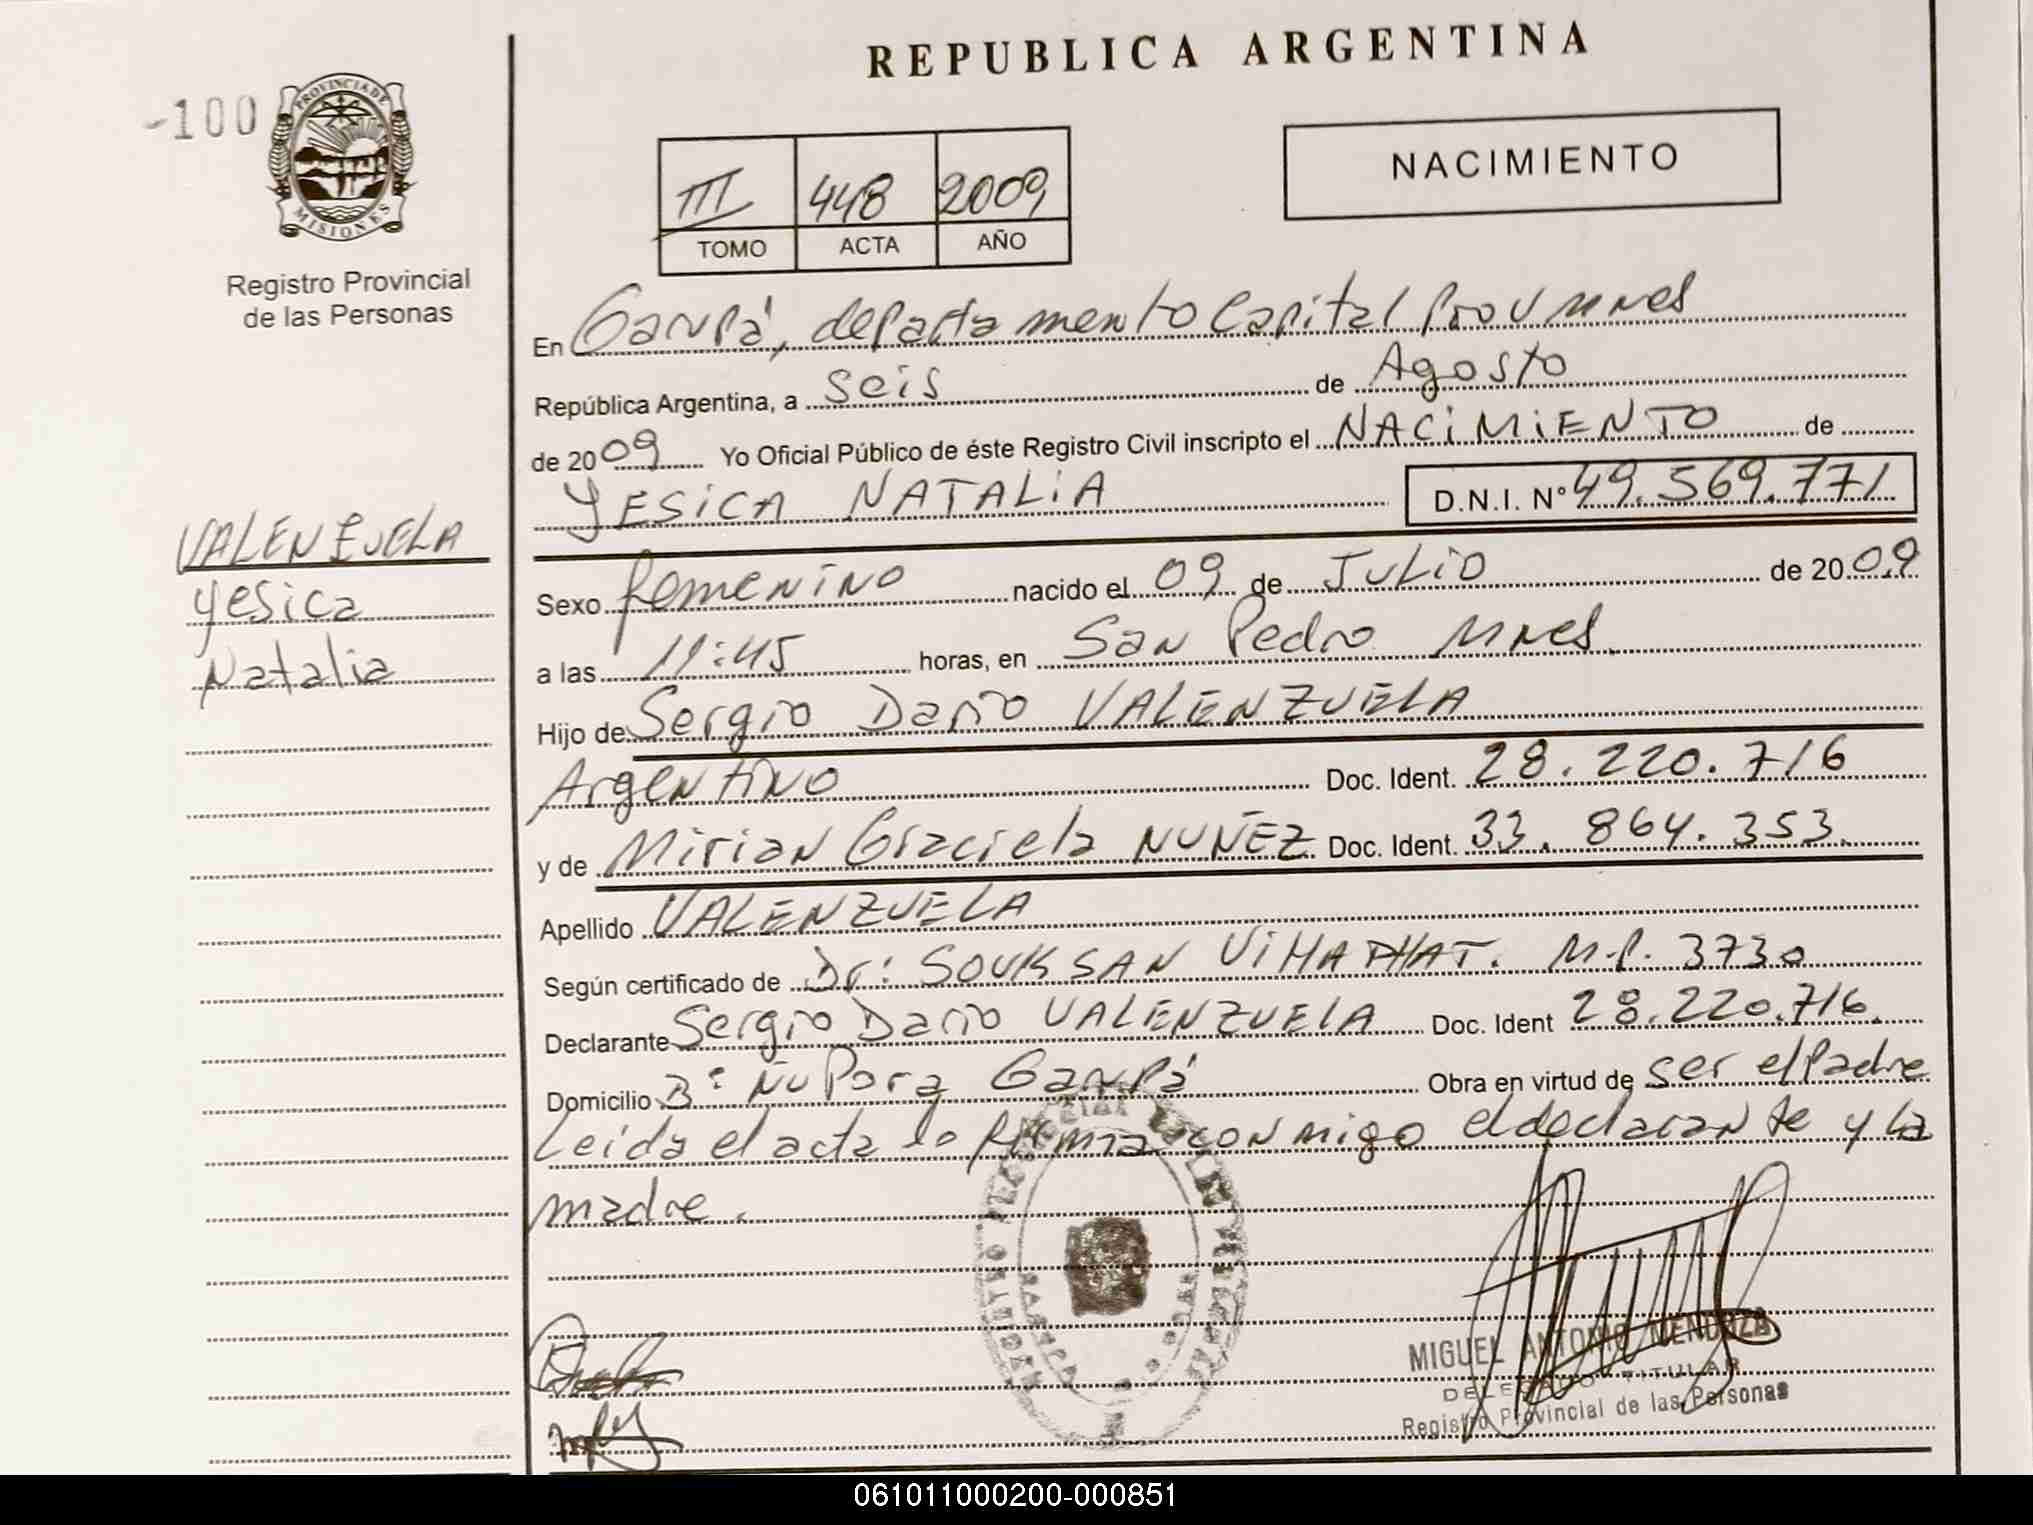 REPUBLICA ARGENTINA
-100
PROVINCIA DE
MISIONES
Registro Provincial
de las Personas
III 448 2009
TOMO ACTA AÑO
NACIMIENTO
En Garupá, departamento Capital Prov Mnes
República Argentina, a seis de Agosto
de 2009 Yo Oficial Público de éste Registro Civil inscripto el NACIMIENTO de
YESICA NATALIA D.N.I. Nº 49.569.771
VALENZUELA
Yesica
Natalia
Sexo femenino nacido el 09 de JULIO de 2009
a las 11:45 horas, en San Pedro Mnes
Hijo de Sergio Dario VALENZUELA
Argentino Doc. Ident. 28.220.716
y de Mirian Graciela NUÑEZ Doc. Ident. 33.864.353.
Apellido VALENZUELA
Según certificado de Dr: SOUKSAN VIHAPHAT. M.P. 3730
Declarante Sergio Dario VALENZUELA Doc. Ident 28.220.716.
Domicilio Bº Ñu Pora Garupá Obra en virtud de ser el Padre
Leida el acta la firma conmigo el declarante y la
madre.
MIGUEL ANTONIO MENDOZA
DELEGADO TITULAR
Registro Provincial de las Personas
061011000200-000851